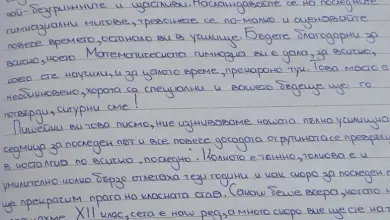 най-безгрижните и щастливи. Наслаждавайте се на последните
гимназиални мигове, тревожете се по-малко и оценявайте
повече времето, останало ви в училище. Бъдете благодарни за
всичко, което Математическата гимназия ви е дала, за всичко,
което сте научили, и за цялото време, прекарано тук. Това място е
необикновено, хората са специални и вашето бъдеще ще го
потвърди, сигурни сме!
Пишейки ви това писмо, ние изживяваме нашата пълна училищна
седмица за последен път и все повече досадата от рутината се превръща
в носталгия по всичко, последно. Колкото е тъжно, толкова е и
умилително колко бързо отлетяха тези години и как скоро за последен път
ще прекрасим прага на класната стая. Сякаш беше вчера, когато
XII клас, сега е наш ред, а много скоро вие ще сте на